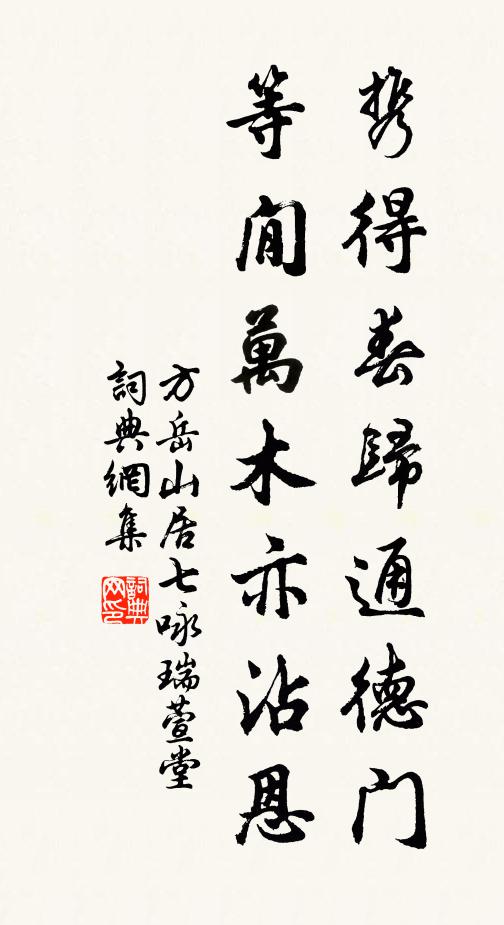 携得春歸通德門
等閒萬木亦沾恩
方岳山居七咏瑞萱堂
詞典網集
詞典网印